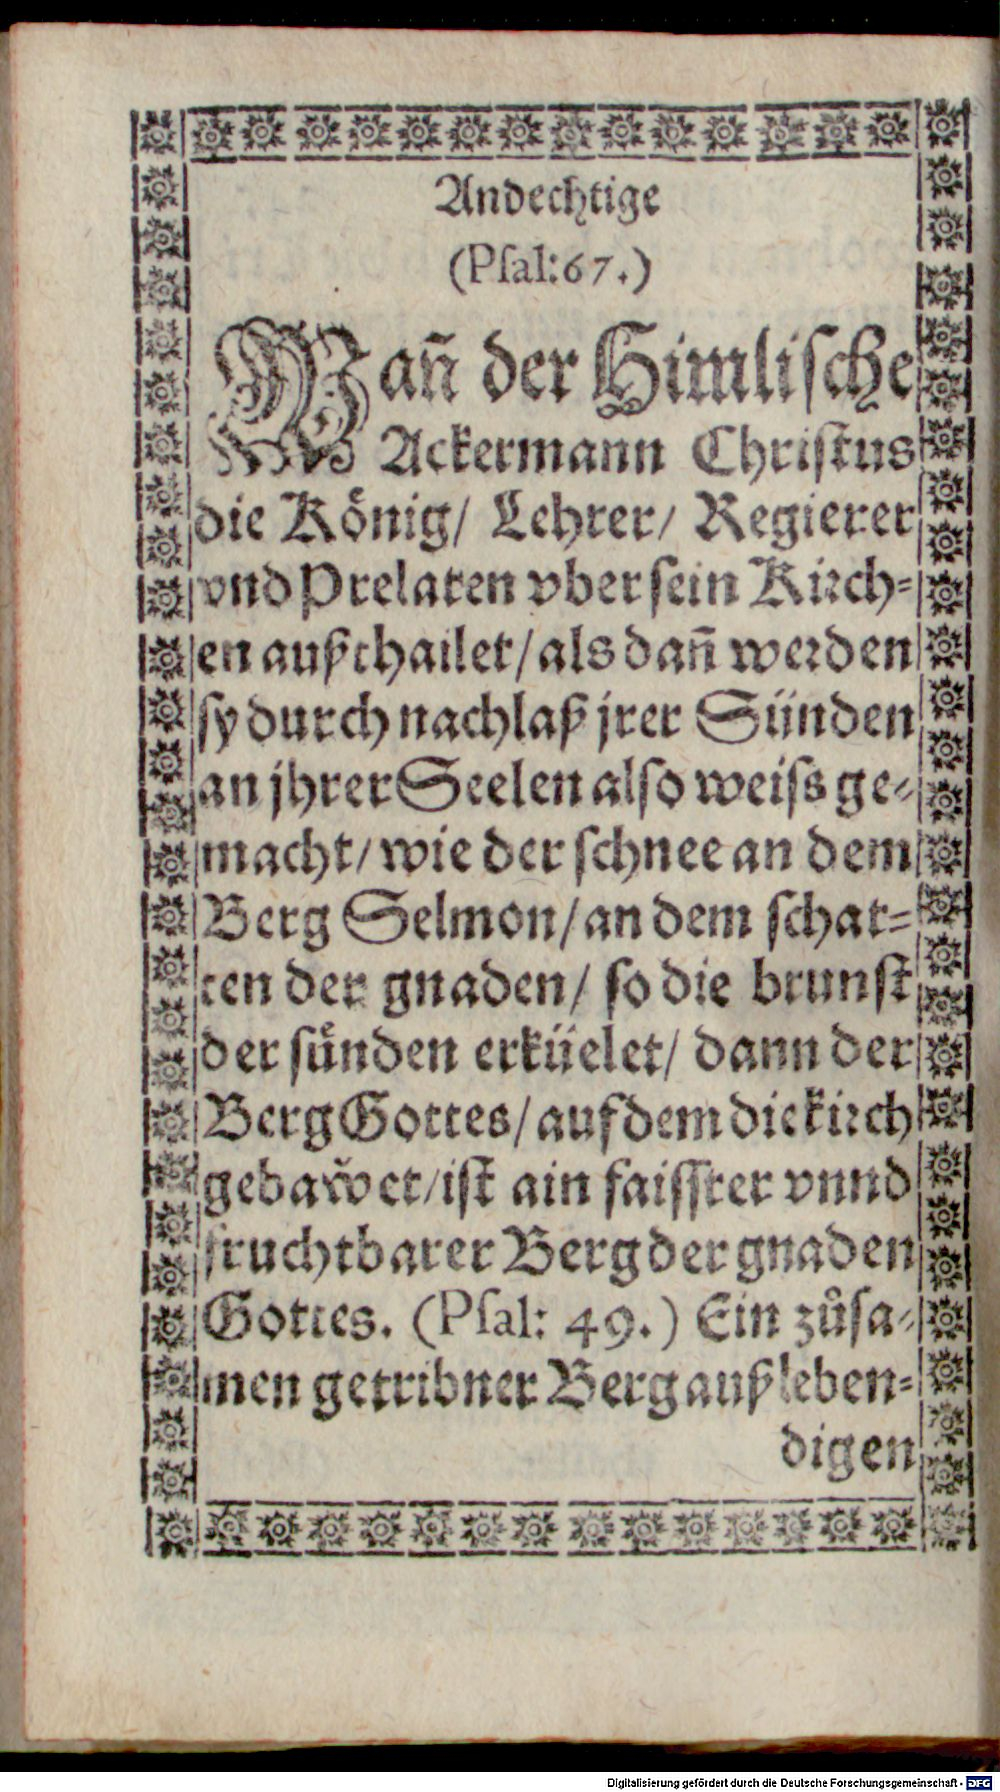 Andechtige
(Pſal:67.)
Wañ der Himliſche
Ackermann Chriſtus
die König/ Lehrer/ Regierer
vnd Prelaten vber ſein Kirch⸗
en außthailet/ als dañ werden
ſy durch nachlaß jrer Sünden
an jhrer Seelen alſo weiſs ge⸗
macht/ wie der ſchnee an dem
Berg Selmon/ an dem ſchat⸗
ten der gnaden/ ſo die brunſt
der ſuͤnden erküelet/ dann der
Berg Gottes/ auf dem die kirch
gebaw̆et/ iſt ain faiſſter vnnd
fruchtbarer Berg der gnaden
Gottes. (Pſal: 49.) Ein zůſa⸗
men getribner Berg auß leben⸗
digen
Digitalisierung gefördert durch die Deutsche Forschungsgemeinschaft - DFG